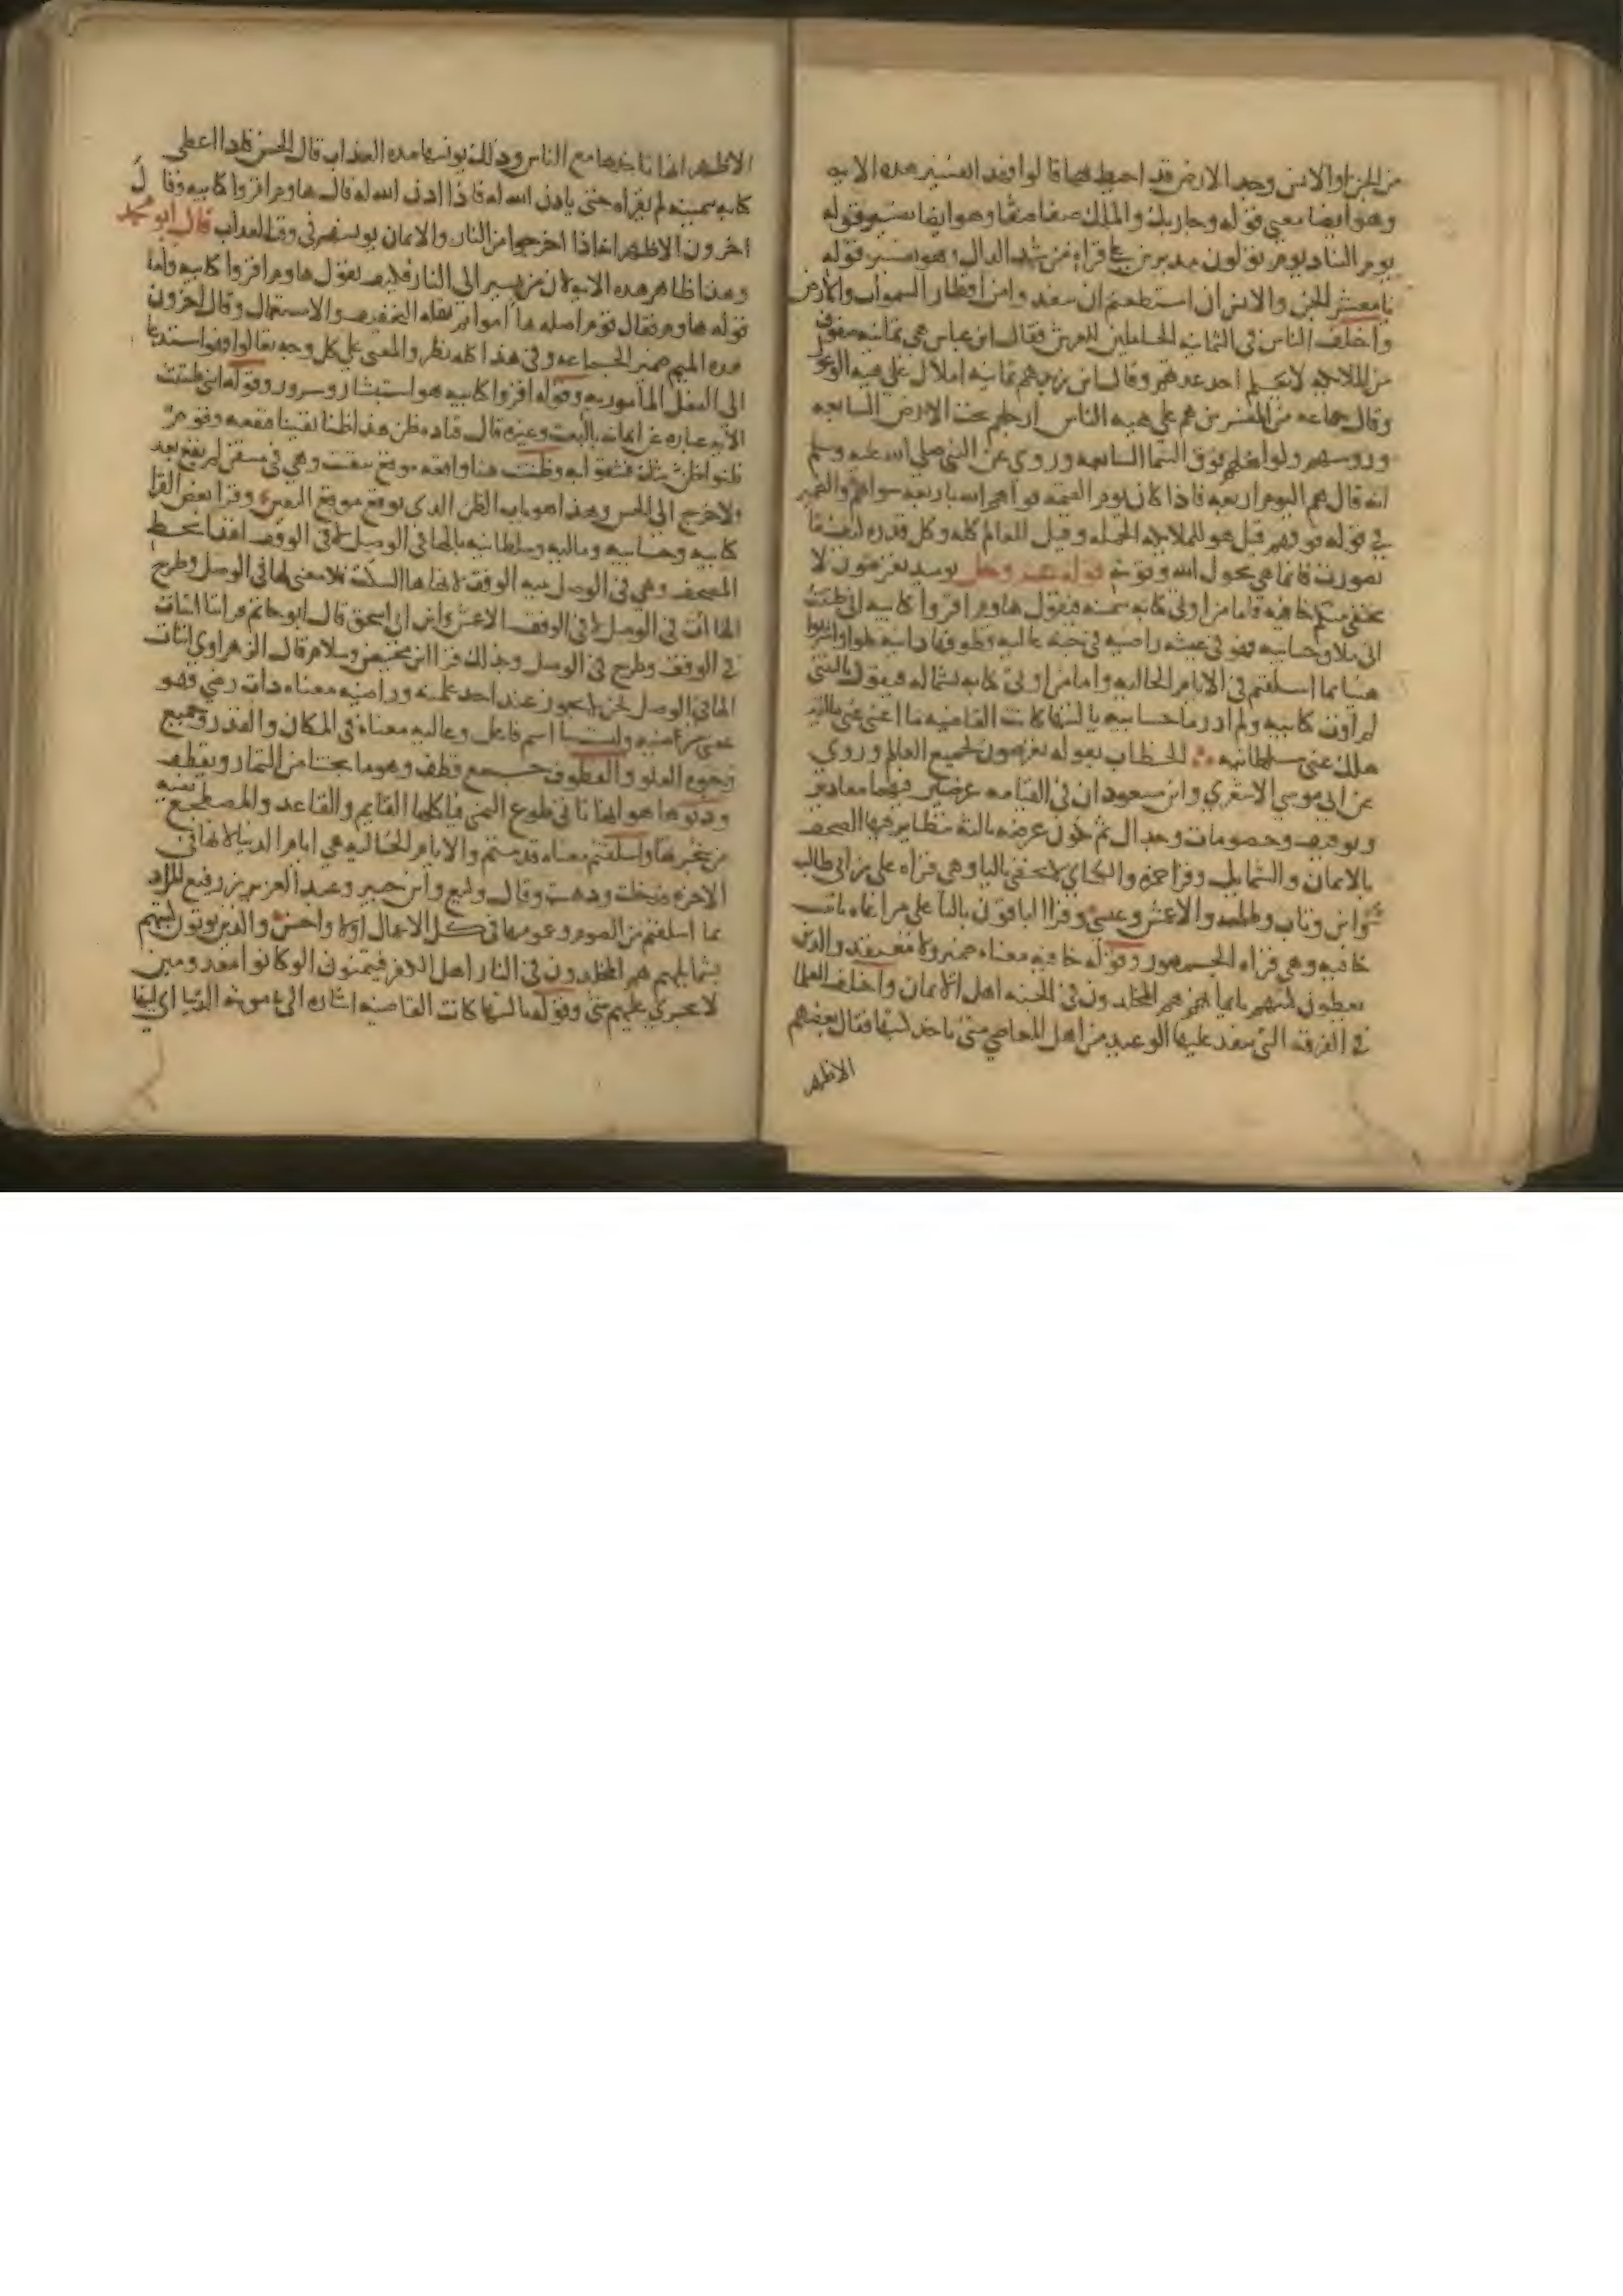 من الجن والانس وجد الارض قد احيط بها قالوا فهذا تفسير هذه الايه
وهو ايضا معنى قوله وجا ربك والملك صفا صفا وهو ايضا تفسير قوله
يوم التناد يوم تولون مدبرين على قراه من شد الدال وهو تفسير قوله
يا معشر الجن والانس ان استطعتم ان تنفذوا من اقطار السموات والارض
واختلف الناس في الثمانيه الحاملين للعرش فقال ابن عباس هي ثمانيه صفوف
من الملايكه لا يعلم احد عدتهم وقال ابن زيد هم ثمانيه املاك على هيه الوعول
وقال جماعه من المفسرين هم على هيه الناس ارجلهم تحت الارض السابعه
وروسهم وكواهلهم فوق السما السابعه وروي عن النبي صلى الله عليه وسلم
انه قال هم اليوم اربعه فاذا كان يوم القيمه قواهم الله باربعه سواهم والضمير
في قوله فوقهم قيل هو للملايكه الحمله وقيل للعالم كله وكل قدره كيفما
تصورت فانما هي بحول الله وقوته قوله عز وجل يوميذ تعرضون لا
تخفى منكم خافيه فاما من اوتي كتابه بيمينه فيقول هاوم اقروا كتابيه اني ظننت
اني ملاق حسابيه فهو في عيشه راضيه في جنه عاليه قطوفها دانيه كلوا واشربوا
هنيا بما اسلفتم في الايام الخاليه واما من اوتي كتابه بشماله فيقول يا ليتني
لم اوت كتابيه ولم ادر ما حسابيه يا ليتها كانت القاضيه ما اغنى عني ماليه
هلك عني سلطانيه الخطاب بقوله تعرضون لجميع العالم وروي
عن ابي موسى الاشعري وابن مسعود ان في القيامه عرضتين فيهما معاذير
وتوقيف وخصومات وجدال ثم تكون عرضه ثالثه تتطاير فيها الصحف
بالايمان والشمايل وقرا حمزه والكساي لا يخفى باليا وهي قراه علي بن ابي طالب
وابن وثاب وطلحه والاعمش وعيسى وقرا الباقون بالتا على مراعاه تانيث
خافيه وهي قراه الجمهور وقوله خافيه معناه ضمير ولا معتقد والذين
يعطون كتبهم بايمانهم هم المخلدون في الجنه اهل الايمان واختلف العلما
في الفرقه التي ينفذ عليها الوعيد من اهل المعاصي متى تاخذ كتبها فقال بعضهم
الاظهر
الاظهر انها تاخذها مع الناس وذلك يونسها مده العذاب قال الحسن فاذا اعطي
كتابه بيمينه لم يقراه حتى ياذن الله له فاذا اذن الله له قال هاوم اقروا كتابيه وقال
اخرون الاظهر انها اذا اخرجوا من النار والايمان يونسهم في وقت العذاب قال ابو محمد
وهذا ظاهر هذه الايه لان من يسير الى النار فكيف يقول هاوم اقروا كتابيه واما
قوله هاوم فقال قوم اصله هاوموا ثم نقله التخفيف والاستعمال وقال اخرون
هذه الميم ضمير الجماعه وفي هذا كله نظر والمعنى على كل وجه تعالوا فهو استدعا
الى الفعل المامور به وقوله اقروا كتابيه هو استبشار وسرور وقوله اني ظننت
الايه عباره عن ايمانه بالبعث وغيره قال قتاده ظن هذا ظنا يقينا فنفعه وقوم
ظنوا ظن الشك فشقوا به وظننت هنا واقعه موقع تيقنت وهي في متيقن لم يقع بعد
ولا خرج الى الحس وهذا هو باب الظن الذي يوقع موقع اليقين وقرا بعض القرا
كتابيه وحسابيه وماليه وسلطانيه بالها في الوصل والوقف اقتدا بخط
المصحف وهي في الوصل بينه الوقف لانها ها السكت فلا معنى لها في الوصل وطرح
الهاات في الوصل لا في الوقف الاعمش وابن ابي اسحق قال ابو حاتم قراتنا اثبات
في الوقف وطرح في الوصل وبذلك قرا ابن محيصن وسلام قال الزهراوي اثبات
الها في الوصل لحن لا يجوز عند احد علمته وراضيه معناه ذات رضى فهو
بمعنى مرضيه وليست بنا اسم فاعل وعاليه معناه في المكان والقدر وجميع
وجوه العلو والقطوف جمع قطف وهو ما يجتنا من الثمار ويقطف
ودنوها هو انها تاتي طوع المتمني فياكلها القايم والقاعد والمضطجع بفيه
من شجرها واسلفتم معناه قدمتم والايام الخاليه هي ايام الدنيا لانها في
الاخره قد خلت وذهبت وقال وكيع وابن جبير وعبد العزيز بن رفيع المراد
بما اسلفتم من الصوم وعمومها في كل الاعمال اولى واحسن والذين يوتون كتبهم
بشمايلهم هم المخلدون في النار اهل الكفر فيتمنون ان لو كانوا معدومين
لا يجري عليهم شي وقوله يا ليتها كانت القاضيه اشاره الى موته الدنيا اي ليتها